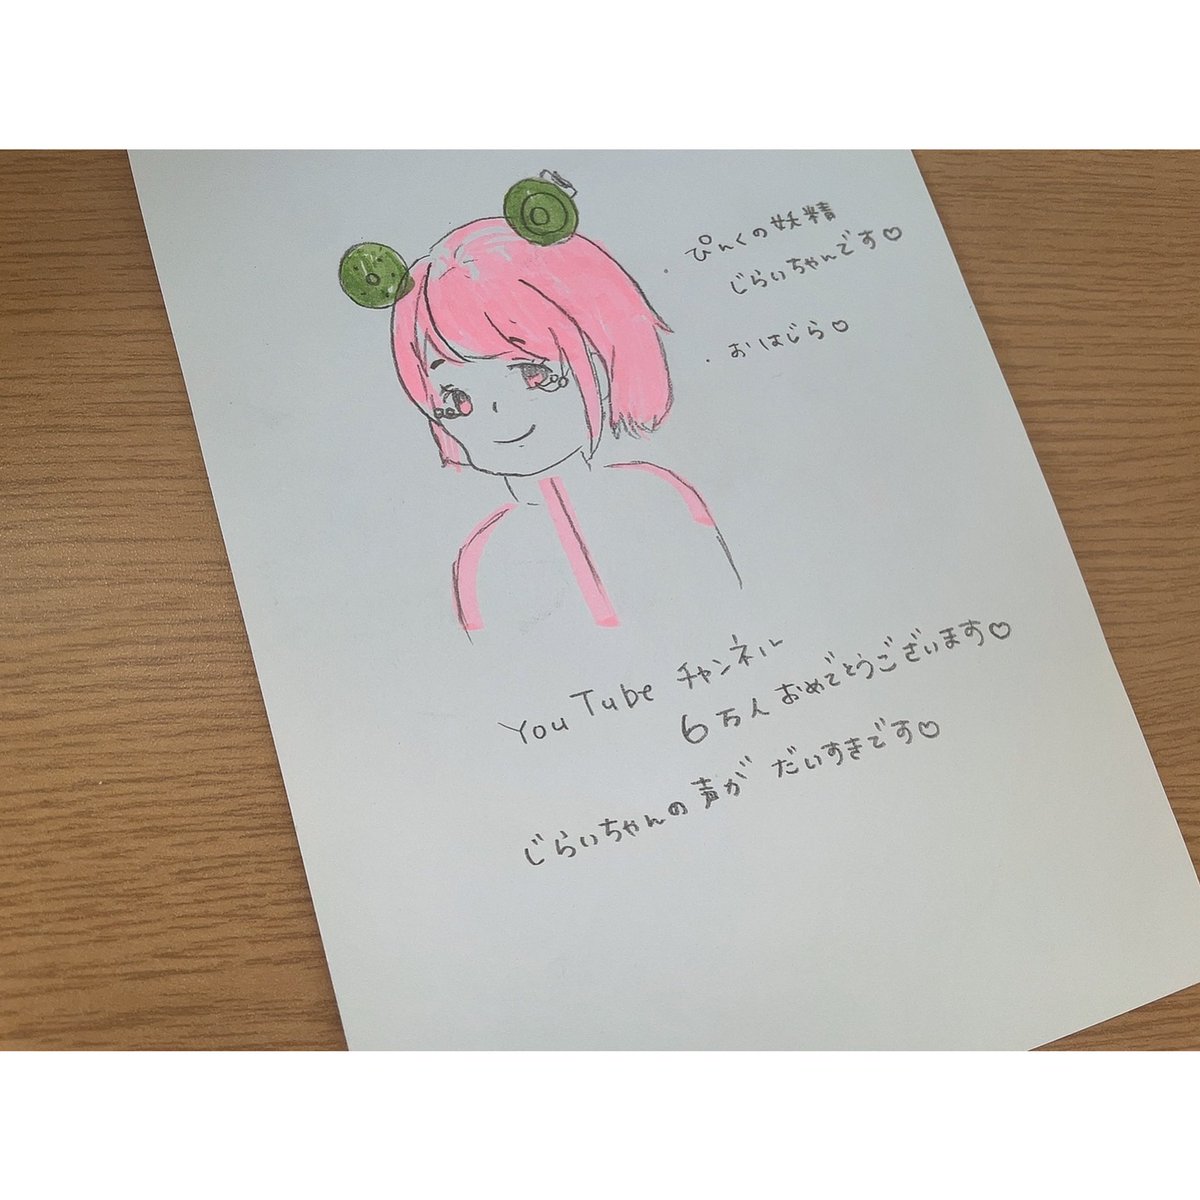 ・ぴんくの妖精
じらいちゃんです♡
・おはじら♡
YouTube チャンネル
6万人 おめでとうございます♡
じらいちゃんの声が だいすきです♡